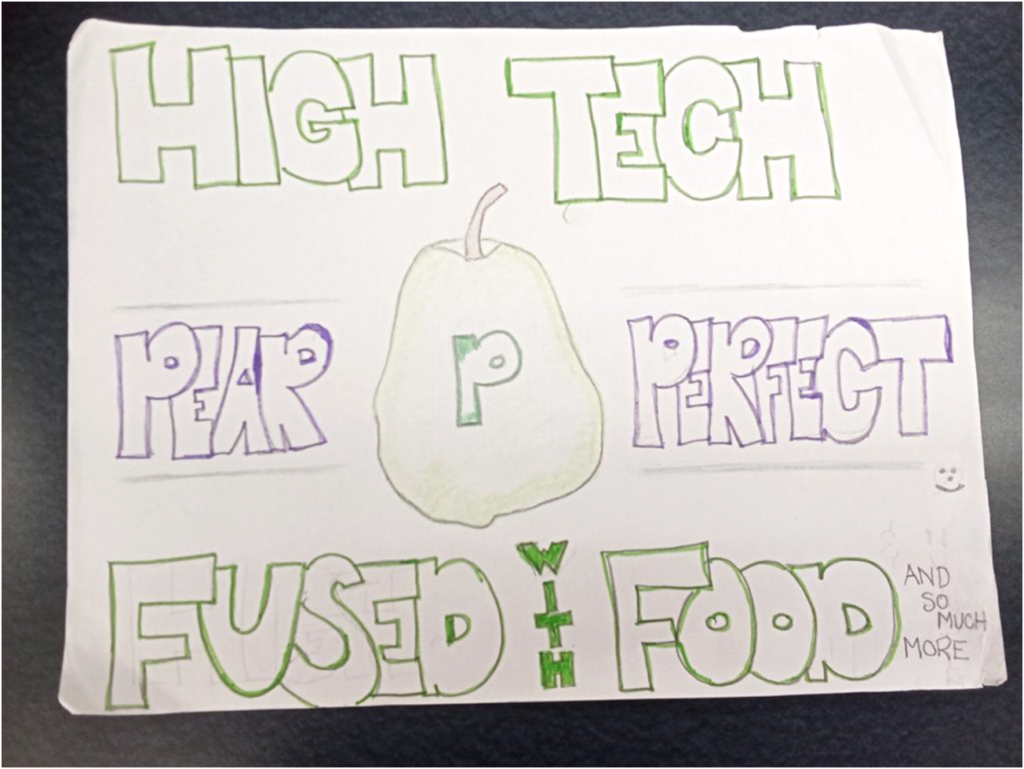 HIGH TECH
PEAR P PERFECT
FUSED WITH FOOD
AND
SO
MUCH
MORE